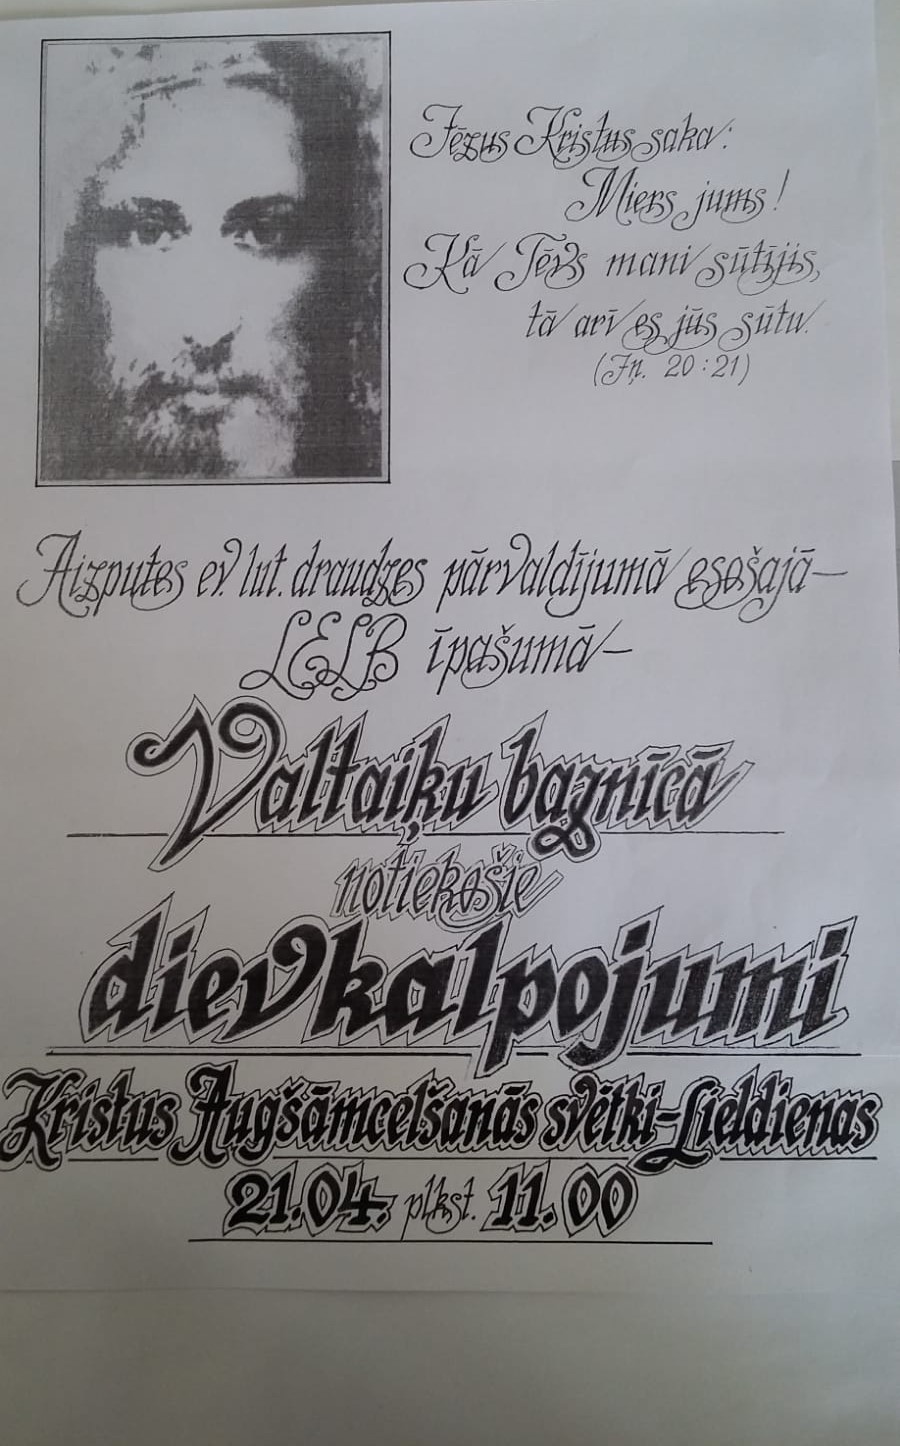 Jēzus Kristus saka:
Miers jums!
Kā Tēvs mani sūtījis,
tā arī es jūs sūtu.
(Jņ. 20:21)
Aizputes ev. lut. draudzes pārvaldījumā esošajā–
LELB īpašumā–
Valtaiķu baznīcā
notiekošie
dievkalpojumi
Kristus Augšāmcelšanās svētki-Lieldienas
21.04. plkst. 11.00